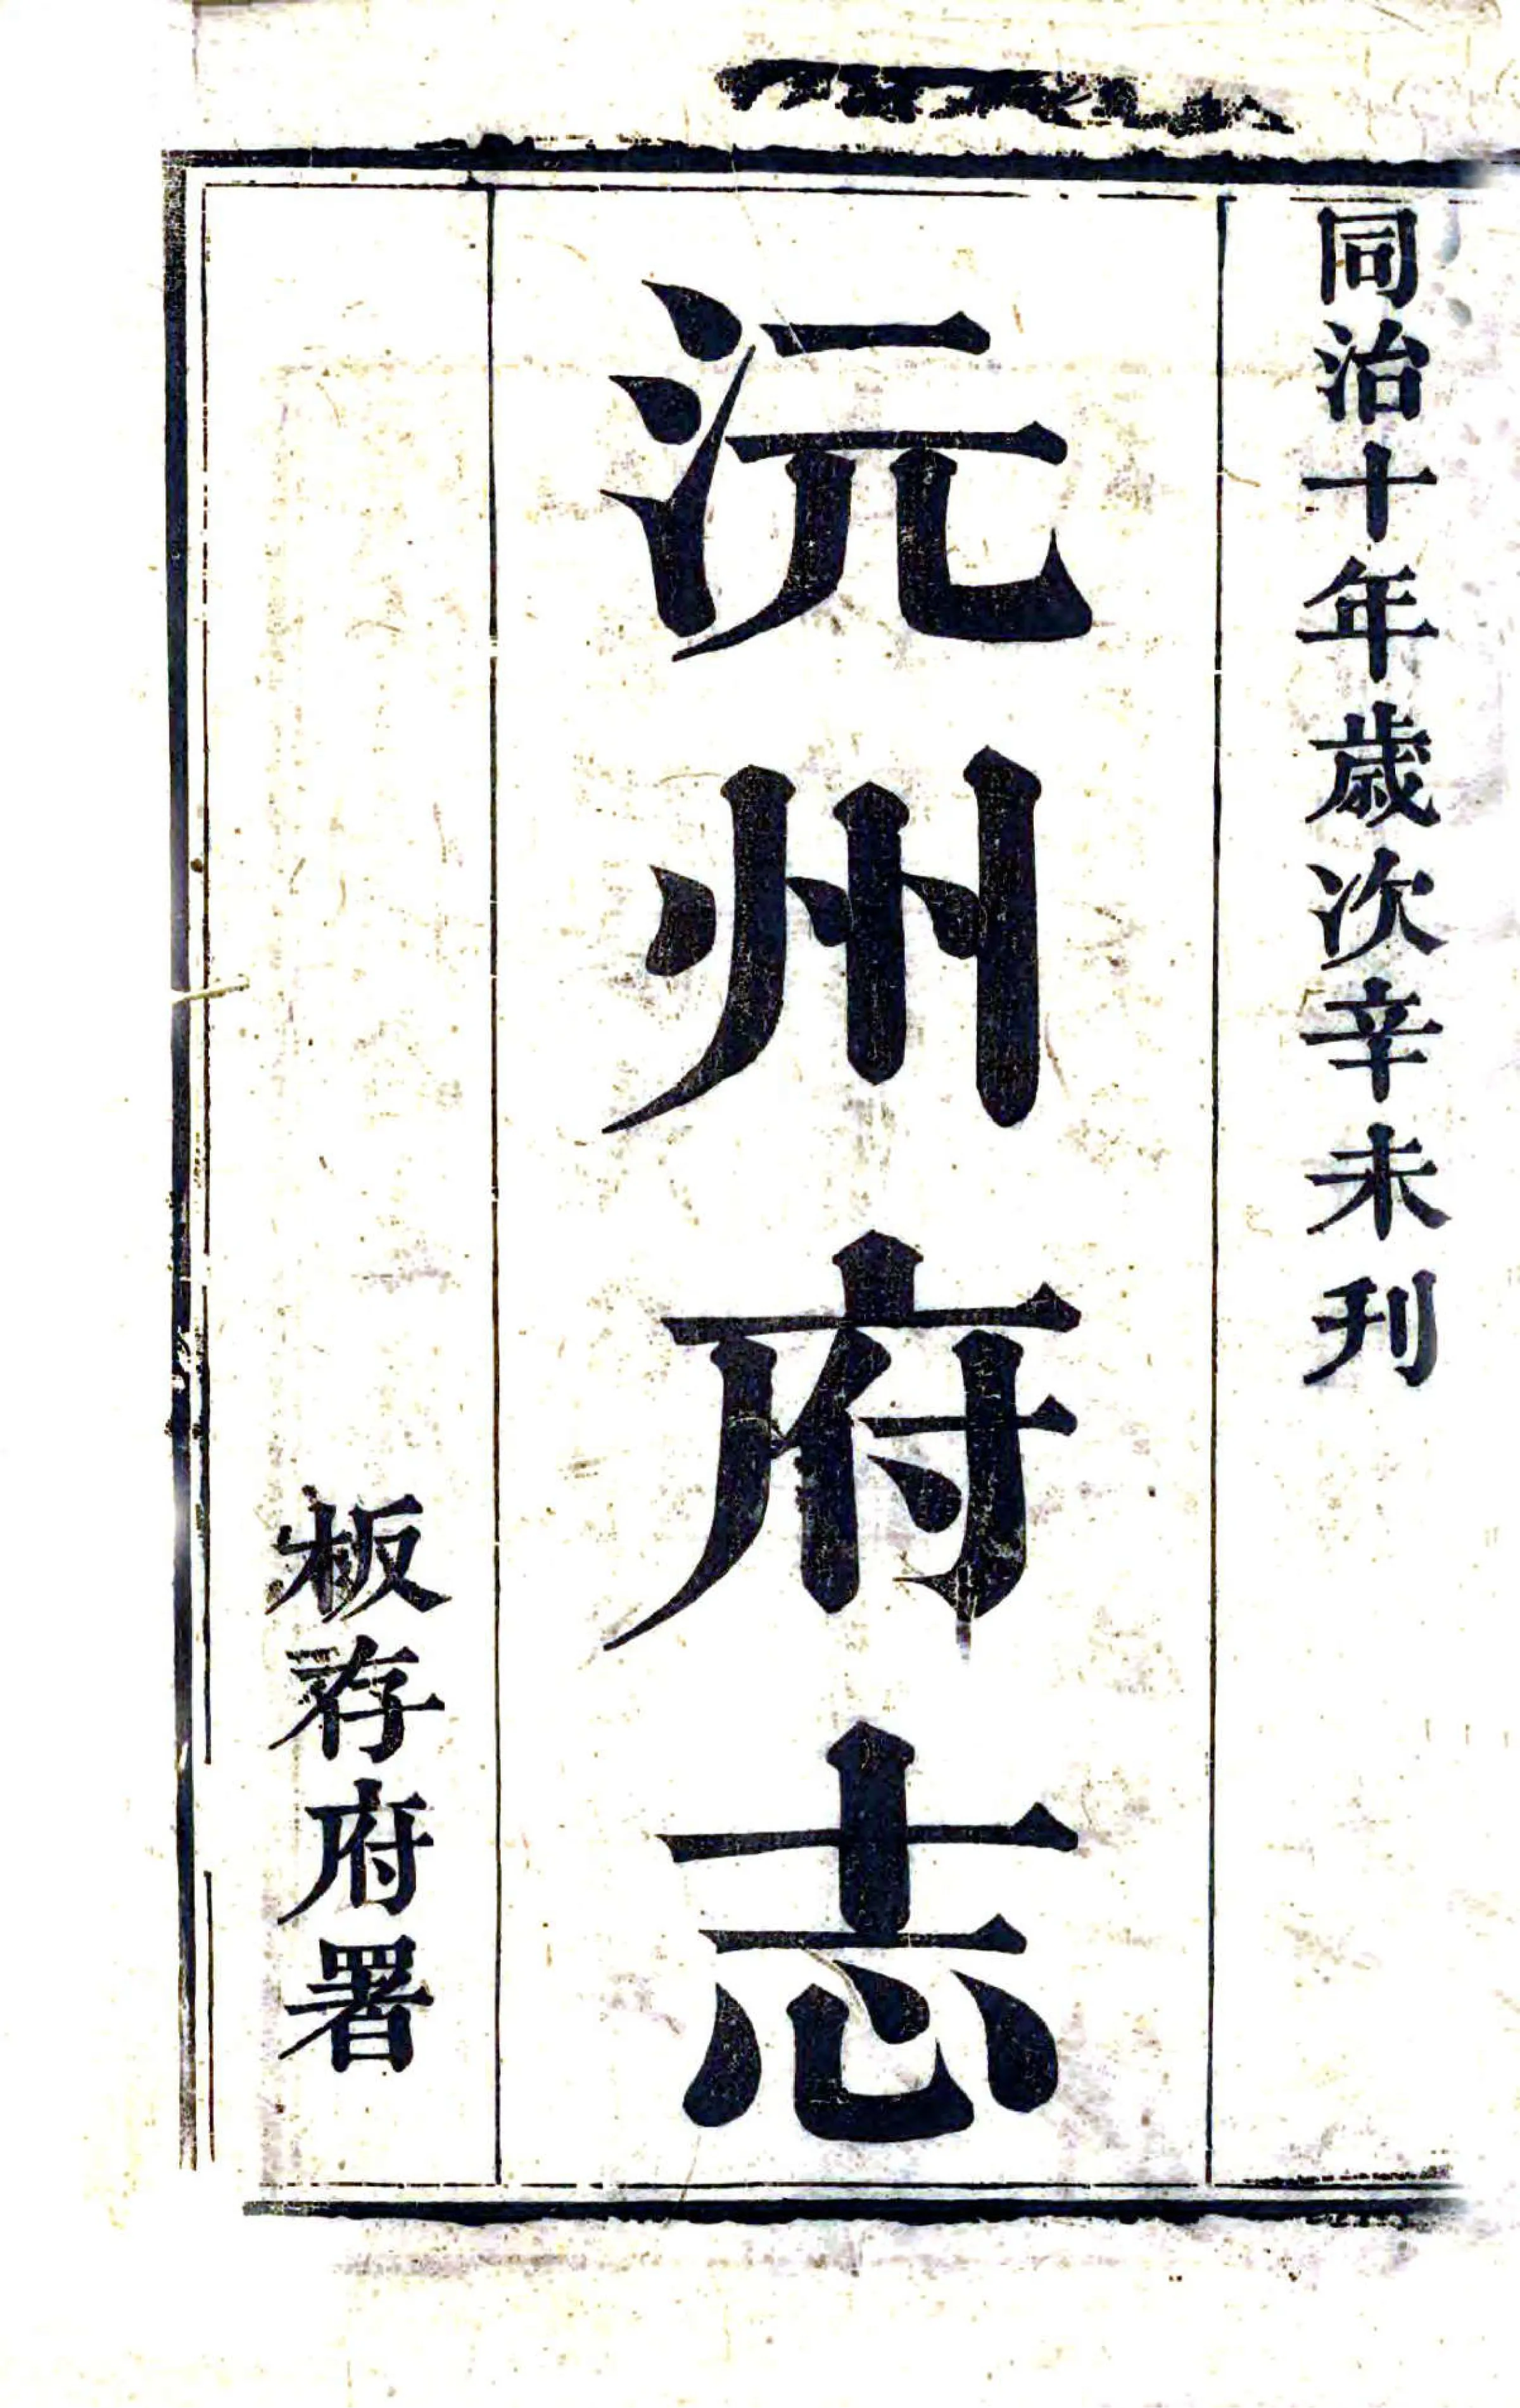 同治十年歲次辛未刊
沅州府志
板存府署